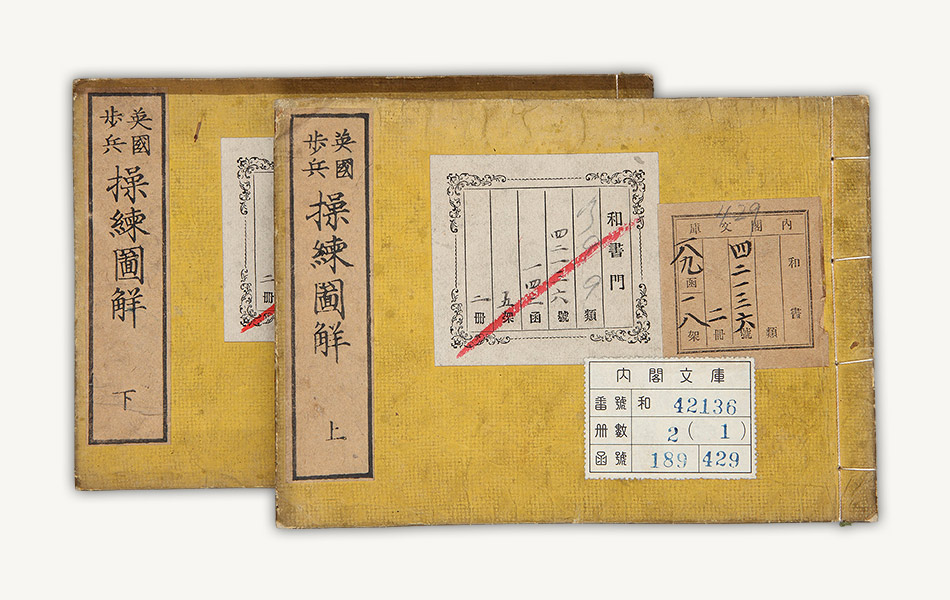 英國
歩兵
操練圖解
下
英國
歩兵
操練圖解
上
和書門
類
四二一三六號
函
五架
二冊
429
內閣文庫
和書
類
四二一三六號
二冊
一八九函
一八架
内閣文庫
番號 和 42136
册數 2 ( 1 )
函號 189 429